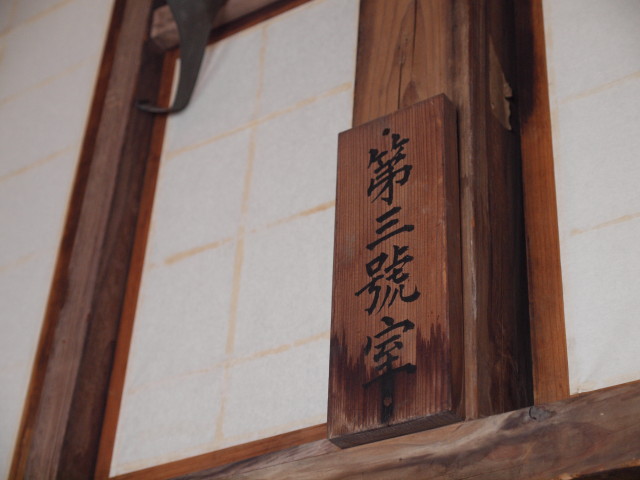 第三號室